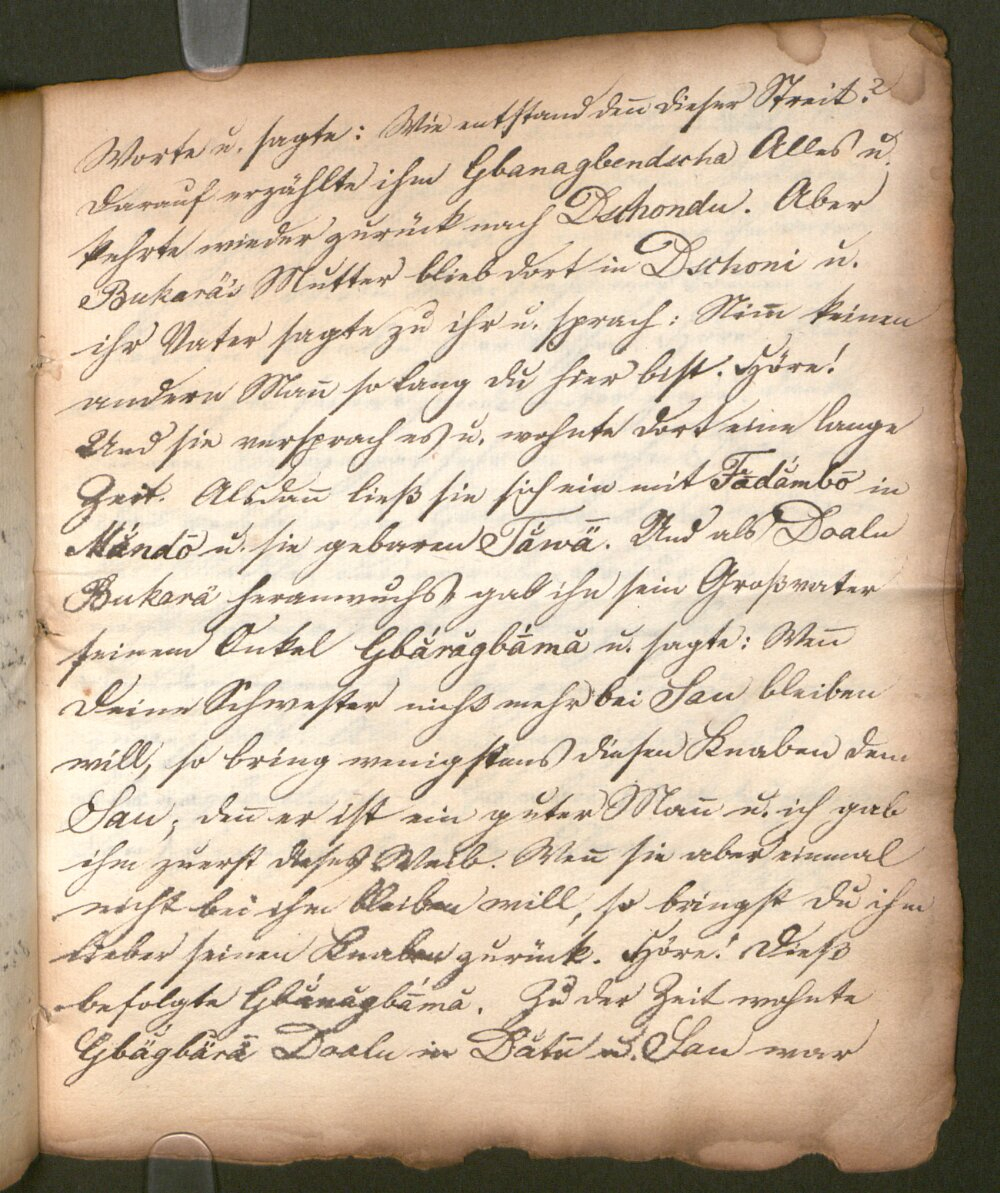 2
Worte u. sagte: Wie entstand den̄ dieser Streit.
Darauf erzählte ihm Gbanagbendscha Alles u.
kehrte wieder zurück nach Dschondu. Aber
Bukarä's Mutter blieb dort in Dschoni u.
ihr Vater sagte zu ihr u. sprach: Nim̄ keinen
andern Man̄ so lang du hier bist. Höre!
Und sie versprach es u. wohnte dort eine lange
Zeit. Alsdan̄ ließ sie sich ein mit Fadámbō in
Mándō u. sie gebaren Táwā. Und als Doalu
Bukarä heranwuchs, gab ihn sein Großvater
seinem Onkel Gbárágbámā u. sagte: Wen̄
Deine Schwester nicht mehr bei San bleiben
will, so bring wenigstens diesen Knaben dem
San; den̄ er ist ein guter Man̄ u. ich gab
ihm zuerst dieses Weib. Wen̄ sie aber einmal
nicht bei ihm bleiben will, so bringst du ihm
lieber seinen Knaben zurück. Höre! Dieß
befolgte Gbárágbámā. Zu der Zeit wohnte
Gbágbárā Doalu in Dátu u. San war